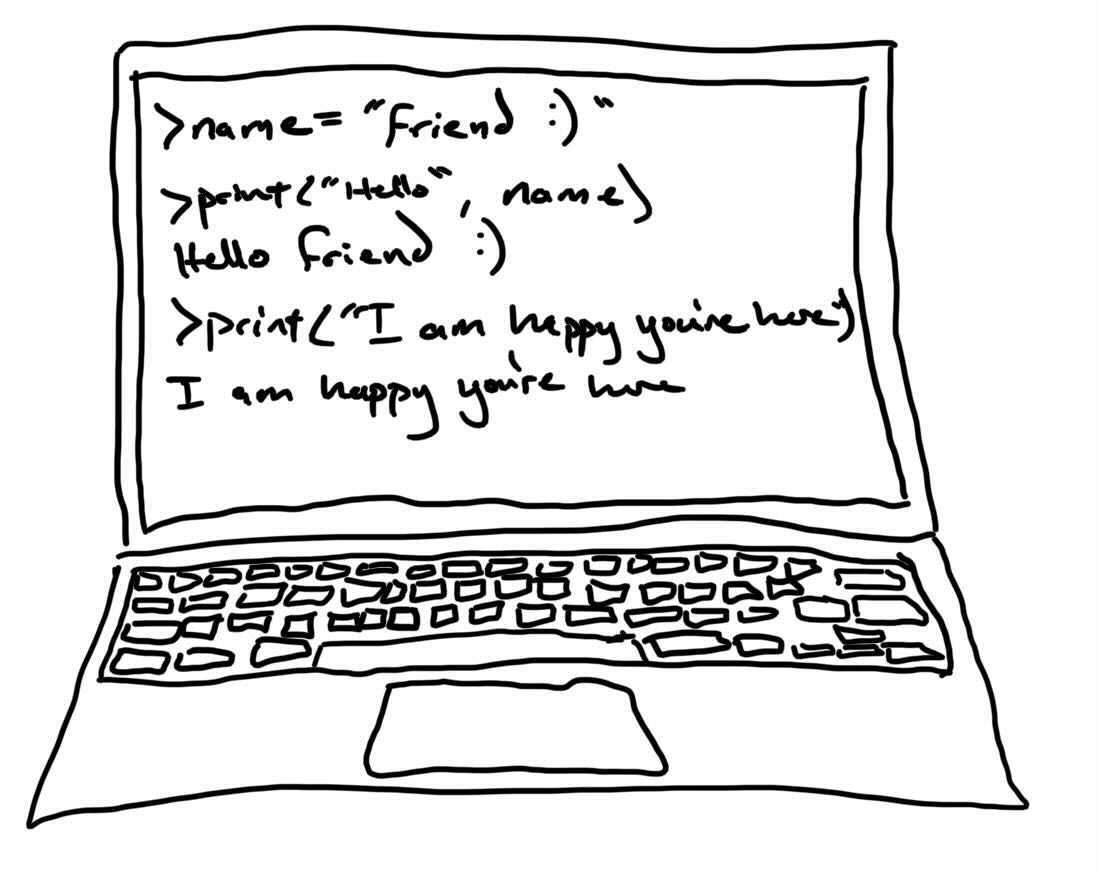 >name= "friend :)"
>print("Hello", name)
Hello friend :)
>print("I am happy you're here")
I am happy you're here